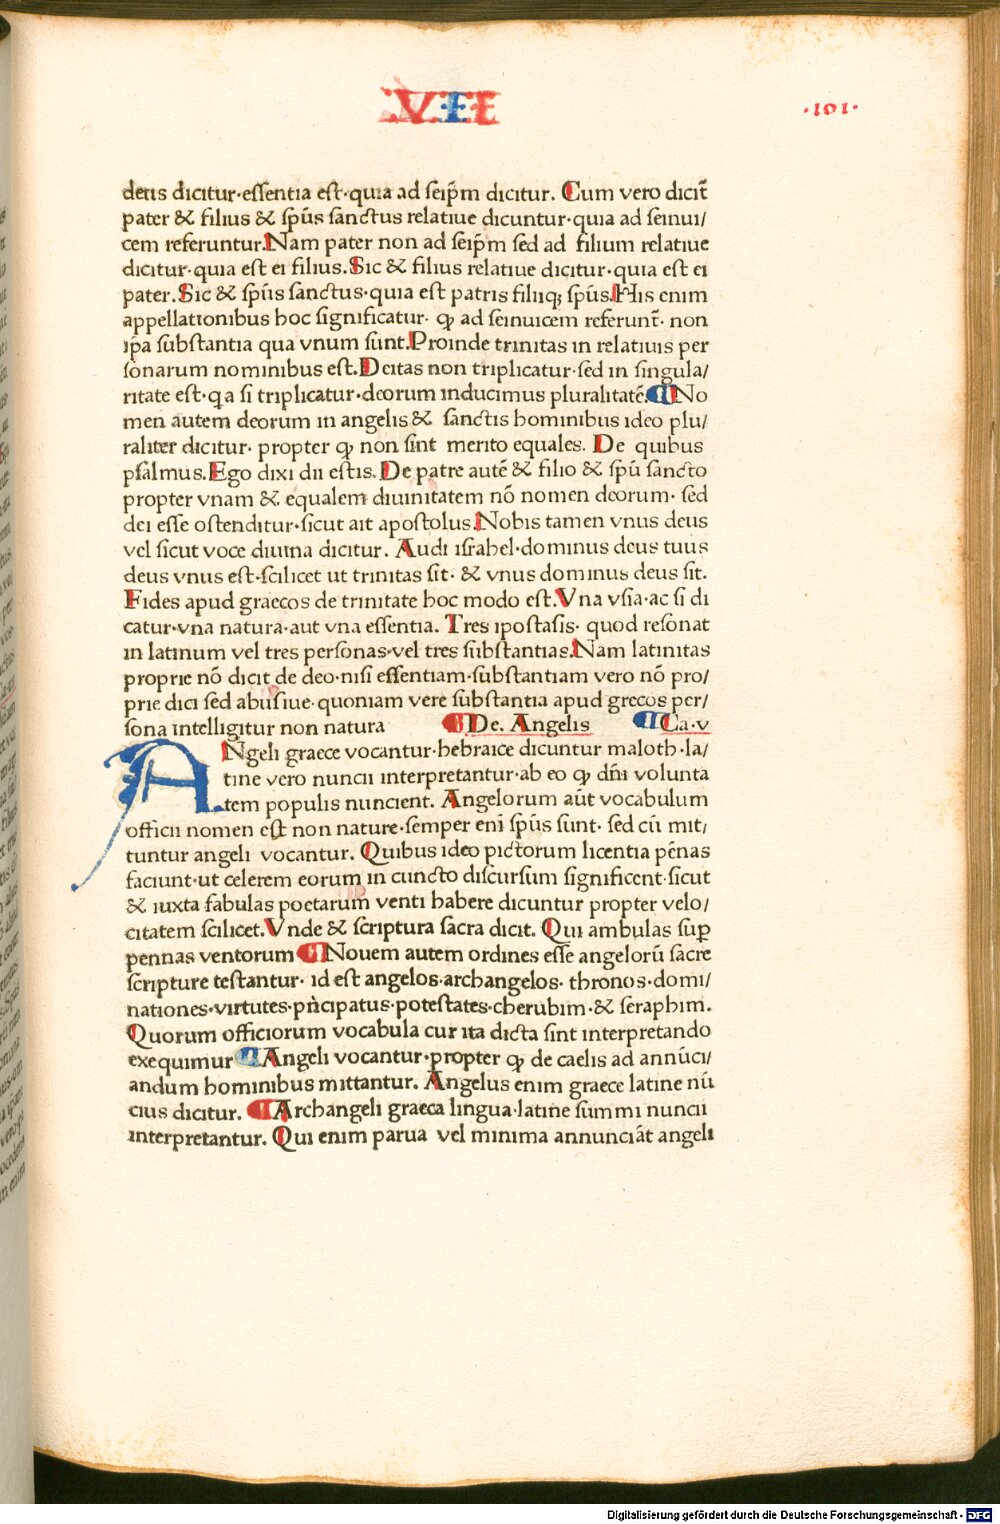 VII
·101·
deus dicitur·essentia est·quia ad seip̄m dicitur. Cum vero dicit̄
pater & filius & sp̄us sanctus relatiue dicuntur·quia ad seinui/
cem referuntur.Nam pater non ad seip̄m sed ad filium relatiue
dicitur·quia est ei filius.Sic & filius relatiue dicitur·quia est ei
pater.Sic & sp̄us sanctus·quia est patris filiiqꝫ sp̄us.His enim
appellationibus hoc significatur· ꝙ ad seinuicem referunt̄· non
ip̄a substantia qua vnum sunt.Proinde trinitas in relatiuis per
sonarum nominibus est.Deitas non triplicatur·sed in singula/
ritate est·q a si triplicatur·deorum inducimus pluralitatē.¶No
men autem deorum in angelis & sanctis hominibus ideo plu/
raliter dicitur· propter ꝙ non sint merito equales. De quibus
psalmus.Ego dixi dii estis.De patre autē & filio & sp̄u sancto
propter vnam & equalem diuinitatem nō nomen deorum· sed
dei esse ostenditur·sicut ait apostolus.Nobis tamen vnus deus
vel sicut voce diuina dicitur. Audi israhel·dominus deus tuus
deus vnus est·scilicet ut trinitas sit· & vnus dominus deus sit.
Fides apud graecos de trinitate hoc modo est.Vna vsia·ac si di
catur·vna natura·aut vna essentia. Tres ipostasis· quod resonat
in latinum vel tres personas·vel tres substantias.Nam latinitas
proprie nō dicit de deo·nisi essentiam·substantiam vero nō pro/
prie dici sed abusiue·quoniam vere substantia apud grecos per/
sona intelligitur non natura ¶De. Angelis ¶Ca·v
ANgeli graece vocantur·hebraice dicuntur maloth·la/
tine vero nuncii interpretantur·ab eo ꝙ dn̄i volunta
tem populis nuncient. Angelorum aūt vocabulum
officii nomen est non nature·semper eni̅ sp̄us sunt· sed cū mit/
tuntur angeli vocantur. Quibus ideo pictorum licentia pēnas
faciunt·ut celerem eorum in cuncto discursum significent·sicut
& iuxta fabulas poetarum venti habere dicuntur propter velo/
citatem scilicet.Vnde & scriptura sacra dicit. Qui ambulas suꝑ
pennas ventorum ¶Nouem autem ordines esse angelorū sacre
scripture testantur· id est angelos·archangelos· thronos·domi/
nationes·virtutes·pn̄cipatus·potestates·cherubim·& seraphim.
Quorum officiorum vocabula cur ita dicta sint interpretando
exequimur ¶Angeli vocantur·propter ꝙ de caelis ad annūci/
andum hominibus mittantur. Angelus enim graece latine nū
cius dicitur. ¶Archangeli graeca lingua·latine summi nuncii
interpretantur. Qui enim parua vel minima annunciāt angeli
Digitalisierung gefördert durch die Deutsche Forschungsgemeinschaft - DFG